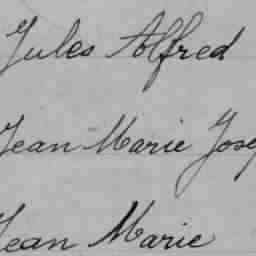 Jules Alfred
Jean Marie Jose
Jean Marie